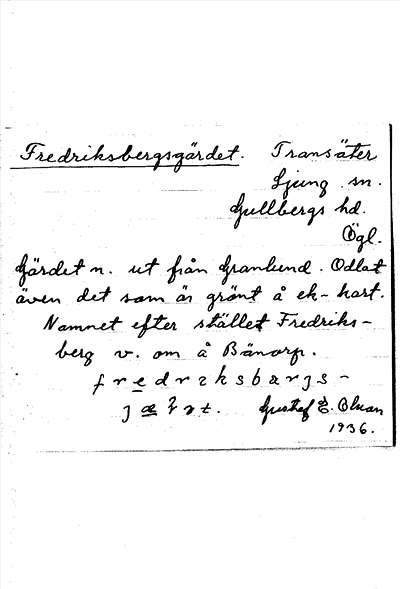 Fredriksbergsgärdet. Transäter
Ljung sn.
Gullbergs hd.
Ögl.
Gärdet n. ut från Granlund. Odlat
även det som är grönt å ek-kart.
Namnet efter stället Fredriks-
berg v. om å Bänorp.
fredrɩksbærjs-
jæɽət. Gustaf E. Olsson
1936.